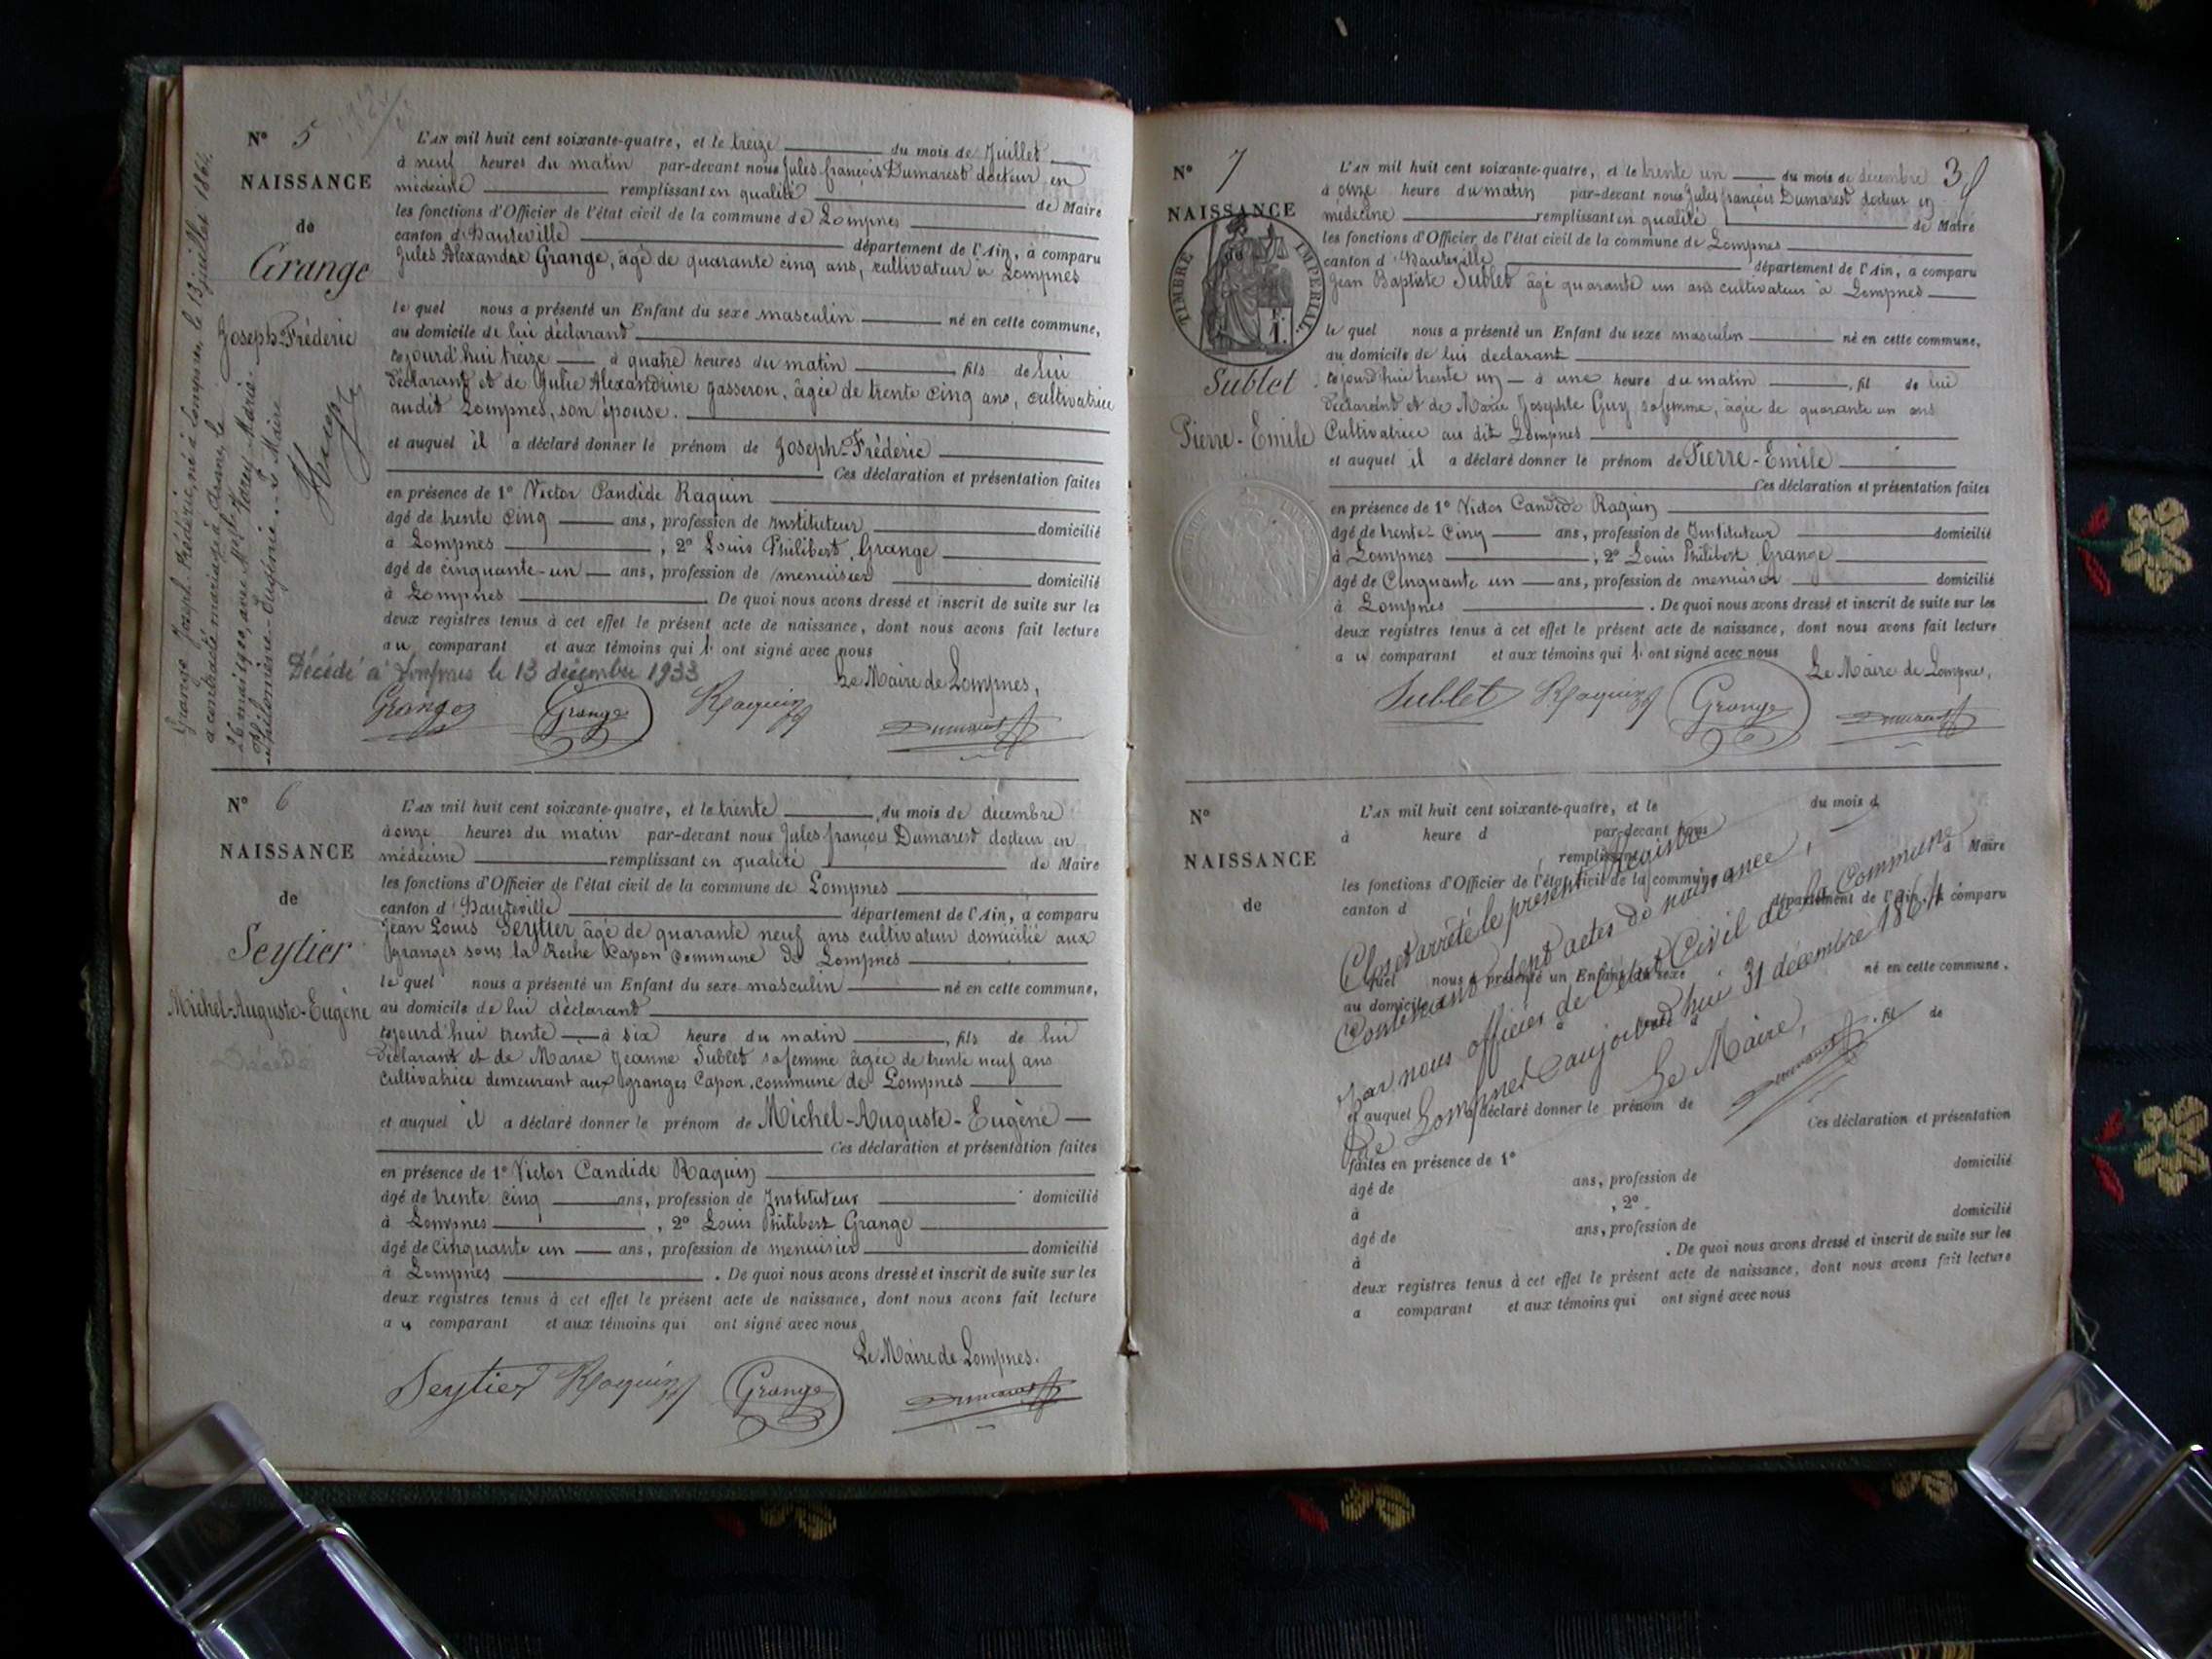 N° 5
NAISSANCE
de
Grange
Joseph-Frédéric
Grange Joseph-Frédéric, né à Lompnes, le 13 juillet 1864,
a contracté mariage à Aranc, le
26 mai 1900, avec Mlle Marie-
Philomène-Eugénie. Le Maire
L'AN mil huit cent soixante-quatre, et le treize du mois de Juillet
à neuf heures du matin par-devant nous Jules françois Dumarest docteur en
médecine remplissant en qualité de Maire
les fonctions d'Officier de l'état civil de la commune de Lompnes
canton d'Hauteville département de l'Ain, a comparu
Jules Alexandre Grange, âgé de quarante cinq ans, cultivateur à Lompnes
le quel nous a présenté un Enfant du sexe masculin né en cette commune,
au domicile de lui déclarant
cejourd'hui treize à quatre heures du matin fils de lui
déclarant et de Julie Alexandrine gasseron, âgée de trente cinq ans, cultivatrice
audit Lompnes, son épouse.
et auquel il a déclaré donner le prénom de Joseph-Frédéric
Ces déclaration et présentation faites
en présence de 1° Victor Candide Raquin
âgé de trente cinq ans, profession de Instituteur domicilié
à Lompnes, 2° Louis Philibert Grange
âgé de cinquante-un ans, profession de menuisier domicilié
à Lompnes. De quoi nous avons dressé et inscrit de suite sur les
deux registres tenus à cet effet le présent acte de naissance, dont nous avons fait lecture
au comparant et aux témoins qui l' ont signé avec nous
Décédé à Lompnes le 13 décembre 1933
Le Maire de Lompnes,
Grange Grange Raquin Dumarest
N° 6
NAISSANCE
de
Seytier
Michel-Auguste-Eugène
Décédé
L'AN mil huit cent soixante-quatre, et le trente du mois de décembre
à onze heures du matin par-devant nous Jules françois Dumarest docteur en
médecine remplissant en qualité de Maire
les fonctions d'Officier de l'état civil de la commune de Lompnes
canton d'Hauteville département de l'Ain, a comparu
Jean Louis Seytier âgé de quarante neuf ans cultivateur domicilié aux
granges sous la Roche Capon commune de Lompnes
le quel nous a présenté un Enfant du sexe masculin né en cette commune,
au domicile de lui déclarant
cejourd'hui trente à six heure du matin, fils de lui
déclarant et de Marie Jeanne Sublet sa femme âgée de trente neuf ans
cultivatrice demeurant aux granges Capon, commune de Lompnes
et auquel il a déclaré donner le prénom de Michel-Auguste-Eugène
Ces déclaration et présentation faites
en présence de 1° Victor Candide Raquin
âgé de trente cinq ans, profession de Instituteur domicilié
à Lompnes, 2° Louis Philibert Grange
âgé de cinquante un ans, profession de menuisier domicilié
à Lompnes. De quoi nous avons dressé et inscrit de suite sur les
deux registres tenus à cet effet le présent acte de naissance, dont nous avons fait lecture
au comparant et aux témoins qui ont signé avec nous
Le Maire de Lompnes.
Seytier Raquin Grange Dumarest
N° 7
NAISSANCE
de
TIMBRE IMPERIAL.
Sublet
Pierre-Emile
3
L'AN mil huit cent soixante-quatre, et le trente un du mois de décembre
à onze heure du matin par-devant nous Jules françois Dumarest docteur en
médecine remplissant en qualité de Maire
les fonctions d'Officier de l'état civil de la commune de Lompnes
canton d'Hauteville département de l'Ain, a comparu
Jean Baptiste Sublet âgé quarante un ans cultivateur à Lompnes
le quel nous a présenté un Enfant du sexe masculin né en cette commune,
au domicile de lui declarant
cejourd'hui trente un à une heure du matin, fil de lui
déclarant et de Marie Josephte Guy sa femme, âgée de quarante un ans
Cultivatrice au dit Lompnes
et auquel il a déclaré donner le prénom de Pierre-Emile
Ces déclaration et présentation faites
en présence de 1° Victor Candide Raquin
âgé de trente-cinq ans, profession de Instituteur domicilié
à Lompnes, 2° Louis Philibert Grange
âgé de Cinquante un ans, profession de menuisier domicilié
à Lompnes. De quoi nous avons dressé et inscrit de suite sur les
deux registres tenus à cet effet le présent acte de naissance, dont nous avons fait lecture
au comparant et aux témoins qui l' ont signé avec nous
Le Maire de Lompnes,
Sublet Raquin Grange Dumarest
N°
NAISSANCE
de
L'AN mil huit cent soixante-quatre, et le du mois d
à heure d par-devant nous
remplissant d Maire
les fonctions d'Officier de l'état civil de la commune
canton d département de l'Ain, a comparu
quel nous a présenté un Enfant du sexe né en cette commune,
au domicile
fil de
et auquel a déclaré donner le prénom de
Ces déclaration et présentation
faites en présence de 1° domicilié
âgé de ans, profession de
à , 2° domicilié
âgé de ans, profession de
à . De quoi nous avons dressé et inscrit de suite sur les
deux registres tenus à cet effet le présent acte de naissance, dont nous avons fait lecture
a comparant et aux témoins qui ont signé avec nous
Clos et arrêté le présent Registre
Contenant sept actes de naissance,
par nous officier de l'état Civil de la Commune
de Lompnes aujourd'hui 31 décembre 1864
Le Maire,
Dumarest